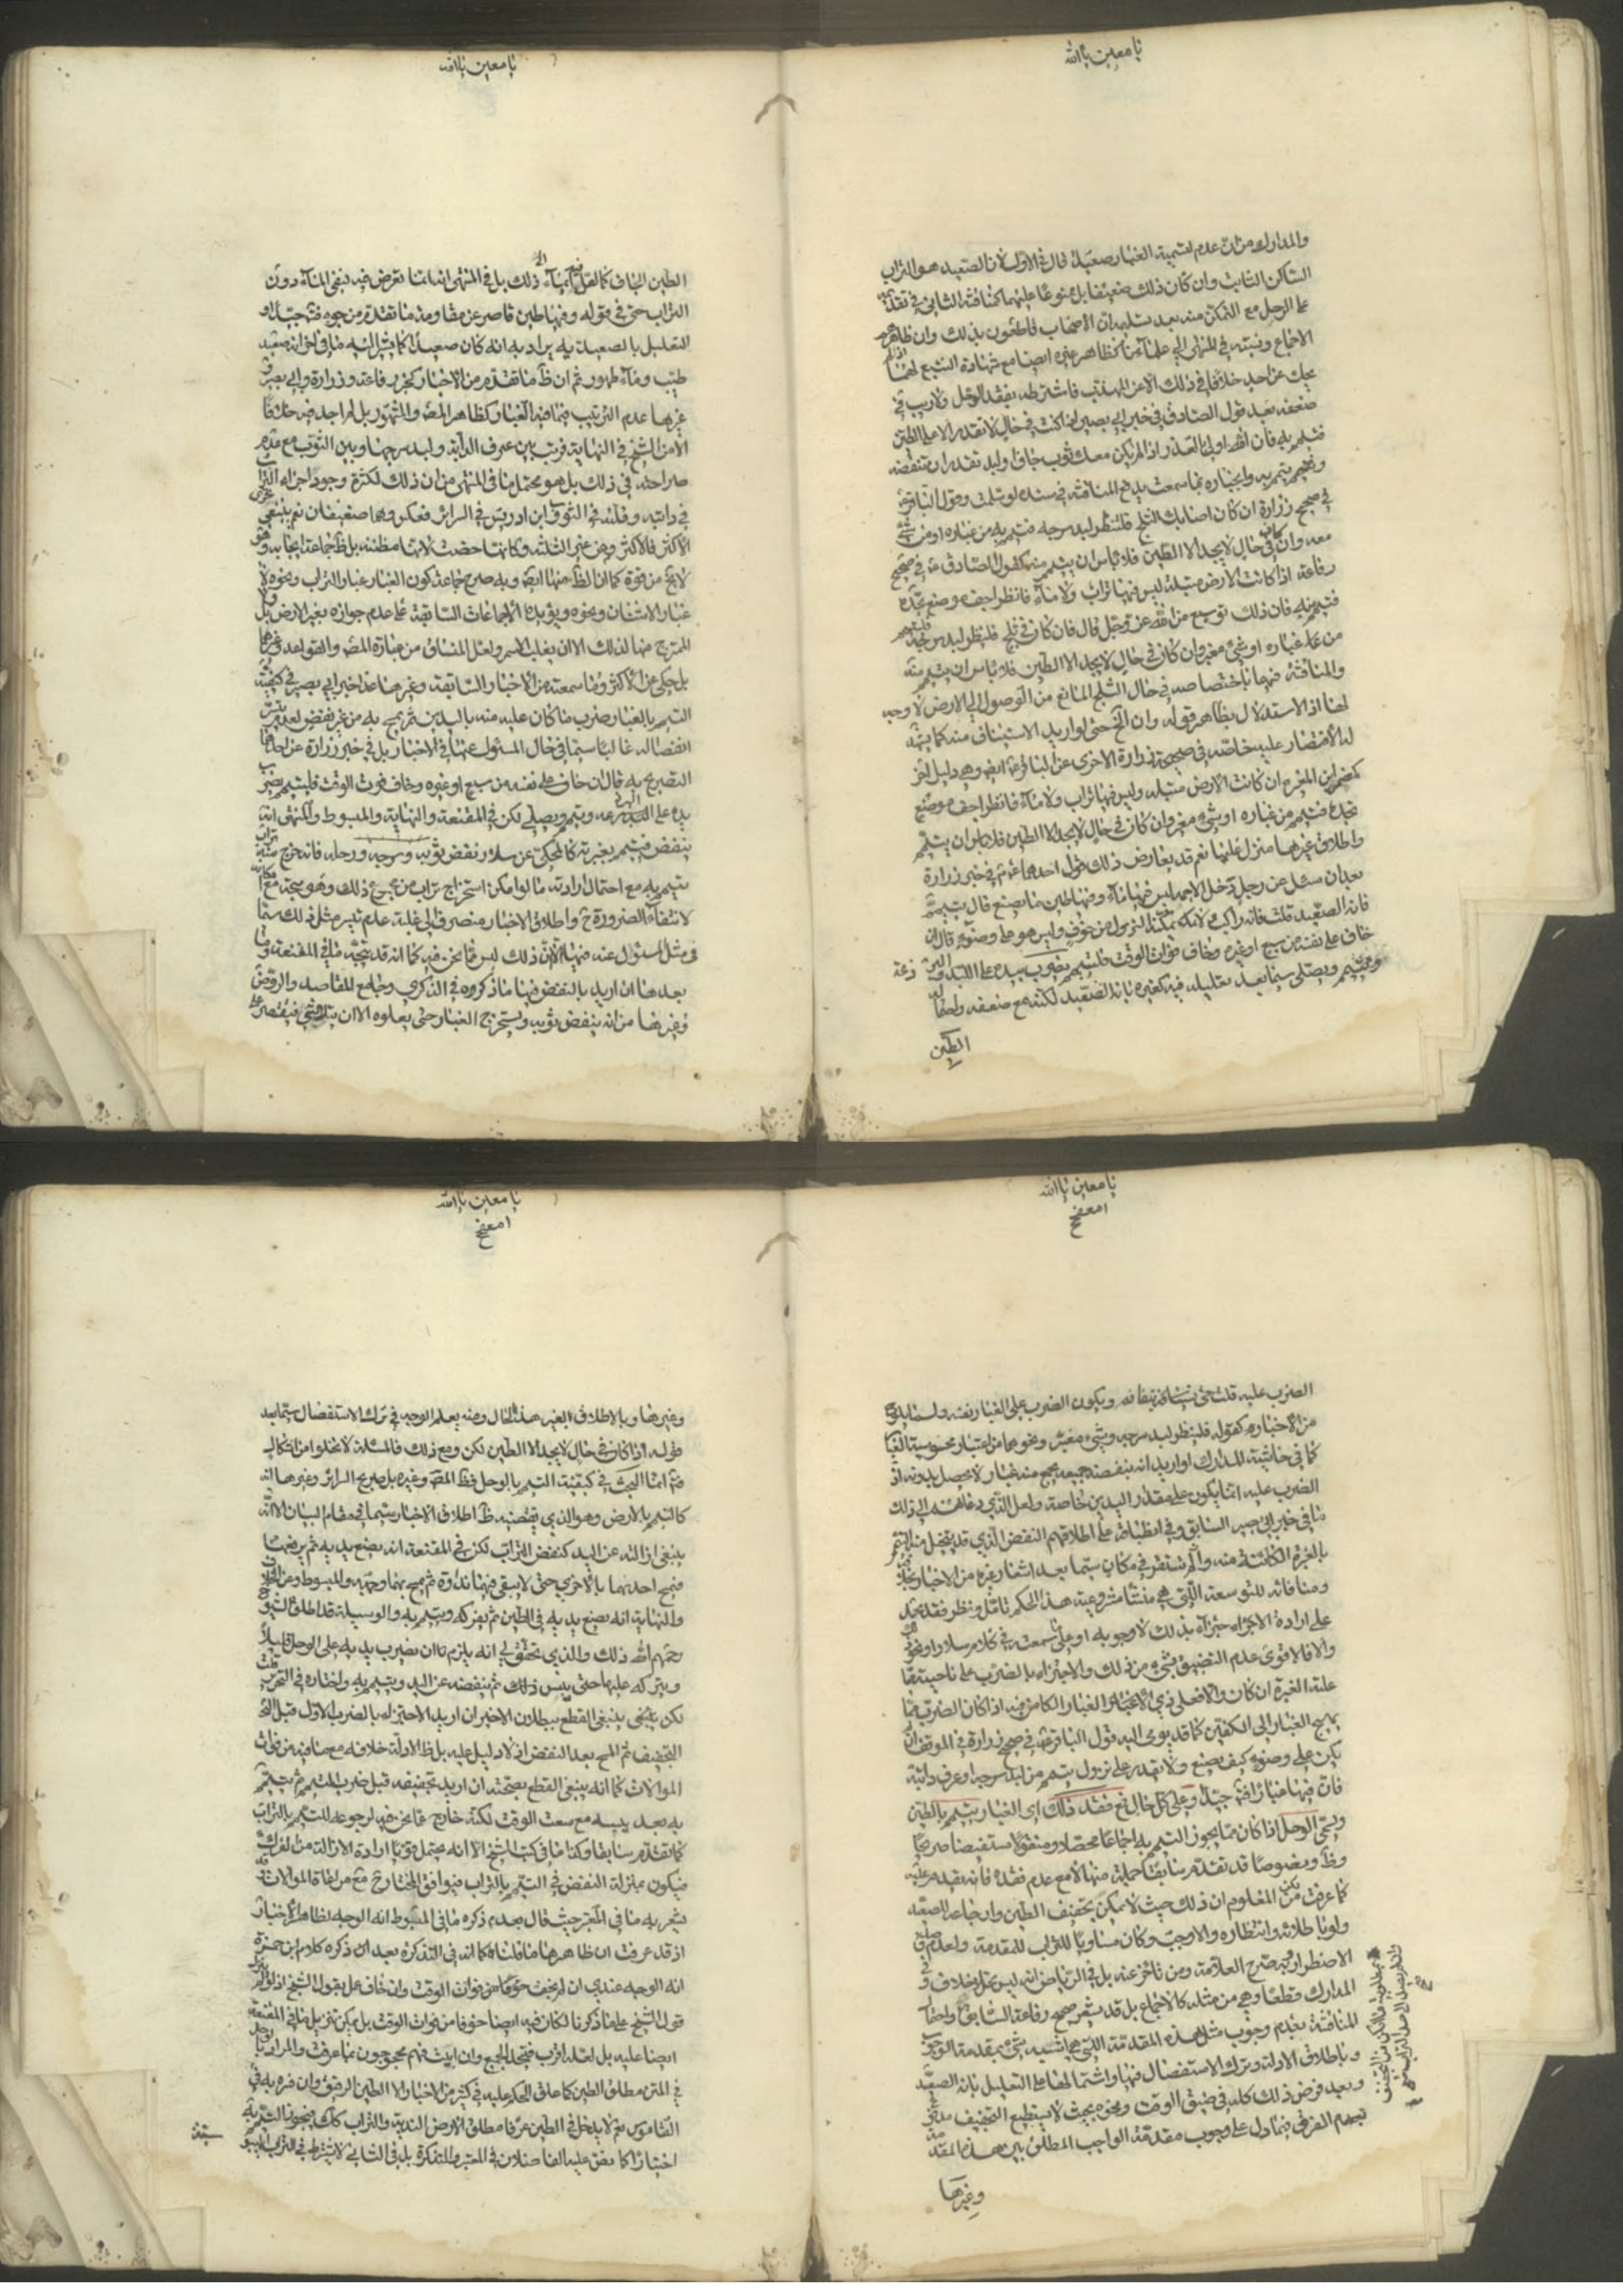 يا معين يا الله
والمدارك من عدم تسمية الغبار صعيدا قال في الاول لان الصعيد هو التراب
الساكن الثابت وان كان ذلك ضعيفا بل ممنوعا عليهما كمنافشة الثاني في
على الوحل مع التمكن منه بعد تسليمه ان الاصحاب قاطعون بذلك وان ظاهرهم
الاجماع ونسبته في المنتهى الى علمائنا كظاهر غيره ايضا مع شهادة التتبع لهما اذ لم
يحك عن احد خلافا في ذلك الا عن المهذب فاشترطه بفقد الوحل ولا ريب في
ضعفه بعد قول الصادق في خبر ابي بصير اذا كنت في حال لا تقدر الا على الطين
فتيمم به فان الله اولى بالعذر اذا لم يكن معك ثوب جاف او لبد تقدر ان تنفضه
وتتيمم به وانجباره بما سمعت يدفع المناقشة في سنده لو سلمت وقول الباقر
في صحيح زرارة ان كان اصابك الثلج فلينظر لبد سرجه فتيمم به من غباره او من شيء
معه وان كان في حال لا يجد الا الطين فلا باس ان يتيمم منه كقول الصادق في صحيح
رفاعة اذا كانت الارض مبتلة ليس فيها تراب ولا ماء فانظر اجف موضع تجده
فتيمم منه فان ذلك توسيع من الله عز وجل قال فان كان في ثلج فلينظر لبد سرجه فليتيمم
من غباره او شيء مغبر وان كان في حال لا يجد الا الطين فلا باس ان يتيمم منه
والمناقشة فيهما باختصاصه في حال الثلج المانع من الوصول الى الارض لا وجه
لها اذ الاستدلال بظاهر قوله وان الخ حتى لو اريد الاستيناف منه كما يشهد
له الاقتصار عليه خاصة في صحيحة زرارة الاخرى عن الباقر ايضا وهو دليل اخر
كخبر ابن المغيرة ان كانت الارض مبتلة وليس فيها تراب ولا ماء فانظر اجف موضع
تجده فتيمم من غباره او شيء مغبر وان كان في حال لا يجد الا الطين فلا باس ان يتيمم
واطلاق غيرها منزل عليها نعم قد يعارض ذلك بقول احدهما في خبر زرارة
بعد ان سئل عن رجل دخل الاجمة ليس فيها ماء وفيها طين ما يصنع قال يتيمم
فانه الصعيد قلت فانه راكب لا يمكنه النزول من خوف وليس هو على وضوء قال ان
خاف على نفسه من سبع او غيره وخاف فوات الوقت فليتيمم يضرب بيده على اللبد والبرذعة
ويتيمم ويصلي سيما بعد تعليله فيه كغيره بانه الصعيد لكنه مع ضعفه واحتمال
الطين
يا معين يا الله
الطين الجاف كما لعله يميأ الى ذلك بل في المنتهى انه انما تعرض فيه لنفي الماء دون
التراب حتى في قوله وفيها طين قاصر عن مقاومة ما تقدم من وجوه فتجه جيدا و
التعليل بالصعيد به يراد به انه كان صعيدا كما يشير اليه ما في اخر انه صعيد
طيب وماء طهور ثم ان ظاهر ما تقدم من الاخبار كخبر رفاعة وزرارة وابي بصير و
غيرها عدم الترتيب فيما فيه الغبار كظاهر المص والمشهور بل لم اجد فيه خلافا
الا من الشيخ في النهاية فرتب بين عرف الدابة ولبد سرجها وبين الثوب مع عدم
صراحته في ذلك بل هو محتمل ما في المنتهى من ان ذلك لكثرة وجود اجزاء التراب
في دابته وقلته في الثوب وابن ادريس في السرائر فعكس وهما ضعيفان نعم ينبغي تحري
الاكثر فالاكثر ومن غير الثلثة وكانها خصت لانها مظنته بل ظاهر جماعة ايجابه وهو
لا يخ من قوة كما ان الظ منها ايضا وبه صرح جماعة كون الغبار غبار التراب ونحوه لا
غبار الاشنان ونحوه ويؤيده الاجماعات السابقة على عدم جوازه بغير الارض بل ولا
الممتزج منها لذلك الا ان يغلب الاسم ولعل المنساق من عبارة المص والقواعد وغيرهما
بل حكى عن الاكثر وما سمعته من الاخبار السابقة وغيرها عدا خبر ابي بصير في كيفية
التيمم بالغبار ضرب ما كان عليه منه باليدين ثم يمسح به من غير نفض لعدم
انفصاله غالبا سيما في حال المسئول عنها في الاخبار بل في خبر زرارة عن احدهما
التصريح به قال ان خاف على نفسه من سبع او غيره وخاف فوت الوقت فليتيمم يضرب
يده على اللبد والبرذعة ويتيمم ويصلي لكن في المقنعة والنهاية والمبسوط والمنتهى انه
ينفض فيتيمم بغبرته كالمحكي عن سلار نفض ثوبه وسرجه ورحله فان خرج منه تراب
تيمم به مع احتمال ارادته ما لو امكن استخراج تراب من مجموع ذلك وهو متجه مع امكانه
لانتفاء الضرورة ح واطلاق الاخبار منصرف الى غلبة عدم تيسر مثل ذلك سيما
في مثل المسئول عنه فيها الا ان ذلك ليس مما نحن فيه كما انه قد يتجه ما في المقنعة وما
بعدها ان اريد بالنفض فيها ما ذكروه في الذكرى وجامع المقاصد والروض
وغيرها من انه ينفض ثوبه ويستخرج الغبار حتى يعلوه الا ان يتلاشى فيقتصر على
يا معين يا الله
الضرب عليه قلت حتى ويكون الضرب على الغبار نفسه
من الاخبار كقوله فلينظر لبد سرجه وشيء مغبر ونحوهما من اعتبار محسوسية الغبار
كما في حاشية المدارك او اريد انه ينفضه جميعه يجمع منه غبار لا يحصل بدونه اذ
الضرب عليه انما يكون على مقدار اليدين خاصة ولعل الذي دعاهم الى ذلك
ما في خبر ابي بصير السابق وفي على اطلاقهم النفض الذي قد يتخيل منه التيمم
بالغبرة الكائنة منه وان لم تستقر في مكان سيما بعد اشعار غيره من الاخبار بخلافه
ومنافاته للتوسعة التي هي منشأ مشروعية هذا الحكم تامل ونظر فقد يحمل
على ارادة الاجتزاء بذلك لا وجوبه او على ما سمعته في كلام سلار او نحو ذلك
والا فالاقوى عدم التضييق بشيء من ذلك والاجتزاء بالضرب على ناحيته
عليه الغبرة ان كان والا فعلى ذي الغبار الكامن فيه اذا كان الضرب مما
يهيج الغبار الى الكفين كما قد يومي اليه قول الباقر في صحيح زرارة في المواقف ان لم
يكن على وضوء كيف يصنع ولا يقدر على نزول يتيمم من لبد سرجه او عرف دابته
فان فيها غبارا فتجه جيدا وعلى كل حال نعم مع فقد ذلك اي الغبار يتيمم بالطين
ويسمى الوحل اذا كان مما يجوز التيمم به اجماعا محصلا ومنقولا مستفيضا صريحا
وظاهرا ونصوصا قد تقدم سابقا جملة منها الا مع عدم فقده فانه يقدم عليه
كما عرفت لكن من المعلوم ان ذلك حيث لا يمكن تجفيف الطين وارجاعه لاصله
ولو باطلائه وانتظاره والا وجب وكان مساويا للتراب للمقدمة ولعدم صدق
الاضطرار وبه صرح العلامة ومن تاخر عنه بل في الرياض انه ليس محل خلاف و
المدارك قطعا وهي من مثله كالاجماع بل قد يشعر صحيح رفاعة السابق واحتمال
المناقشة بعدم وجوب مثل هذه المقدمة التي هي اشبه شيء بمقدمة الوجوب
وباطلاق الادلة وترك الاستفصال فيها واشتمالها على التعليل بانه الصعيد
وبعد فرض ذلك كله في ضيق الوقت ونحوه بحيث لا يستطيع التجفيف
بعدم الفرق فيما دل على وجوب مقدمة الواجب المطلق بين هذه المقدمة
وغيرها
يا معين يا الله
وغيرها وبالاطلاق لغير هذا الحال ومنه يعلم الوجه في ترك الاستفصال سيما بعد
قوله اذا كان في حال لا يجد الا الطين لكن ومع ذلك فالمسئلة لا تخلو من اشكال
ثم انما البحث في كيفية التيمم بالوحل فظ المص وغيره بل صريح السرائر وغيرها انه
كالتيمم بالارض وهو الذي يقتضيه ظاهر اطلاق الاخبار سيما في مقام البيان الا انه
ينبغي ازالته عن اليد كنفض التراب لكن في المقنعة انه يضع يديه ثم يرفعهما
فيمسح احدهما بالاخرى حتى لا يبقى فيهما نداوة ثم يمسح بهما وجهه والمبسوط وعن
والنهاية انه يضع يديه في الطين ثم يفركه ويتيمم به والوسيلة قد اطلق الشيوخ
رحمهم الله ذلك والذي تحقق لي انه يلزم ان يضرب يديه على الوحل قليلا
ويتركه عليها حتى ييبس ذلك ثم ينفضه عن اليد ويتيمم به واختاره في التحرير
لكن ينبغي القطع ببطلان الاخير ان اريد الاجتزاء بالضرب الاول قبل
التجفيف ثم المسح بعد النفض اذ لا دليل عليه بل ظ الادلة خلافه مع منافيه من فوات
الموالات كما انه ينبغي القطع بصحته ان اريد تجفيفه قبل ضرب المتيمم ثم يتيمم
به بعد يبسه مع سعة الوقت لكنه خارج عما نحن فيه لرجوعه للتيمم بالتراب
كما تقدم سابقا وكذا ما في كتب الشيخ الا انه يحتمل قويا ارادة الازالة من الفرك
فيكون بمنزلة النفض في التيمم بالتراب فيوافق المختار ح مع مراعاة الموالات
يشعر به ما في المعتبر حيث قال بعد ذكره ما في المبسوط انه الوجه لظاهر الاخبار
اذ قد عرفت ان ظاهرها ما قلناه كما انه في التذكرة بعد ان ذكره كلام ابن حمزة
انه الوجه عندي ان لم يخف خوفا من فوات الوقت وان خاف عمل بقول الشيخ اذ لو لم
قول الشيخ على ما ذكرنا لكان فيه ايضا خوفا من فوات الوقت بل يمكن تنزيل ما في المقنعة
ايضا عليه بل لعله اقرب فيتحد الجميع وان ابيت فهم محجوجون بما عرفت والمراد بالوحل
في المتن مطلق الطين كما علق الحكم عليه في كثير من الاخبار لا الطين الرقيق وان فسره به في
القاموس نعم لا يدخل في الطين عرفا مطلق الارض الندية والتراب كذلك فيجوز التيمم به
اختيارا كما نص عليه الفاضلان في المعتبر والتذكرة بل في الثاني لا يشترط في التراب اليبوسة